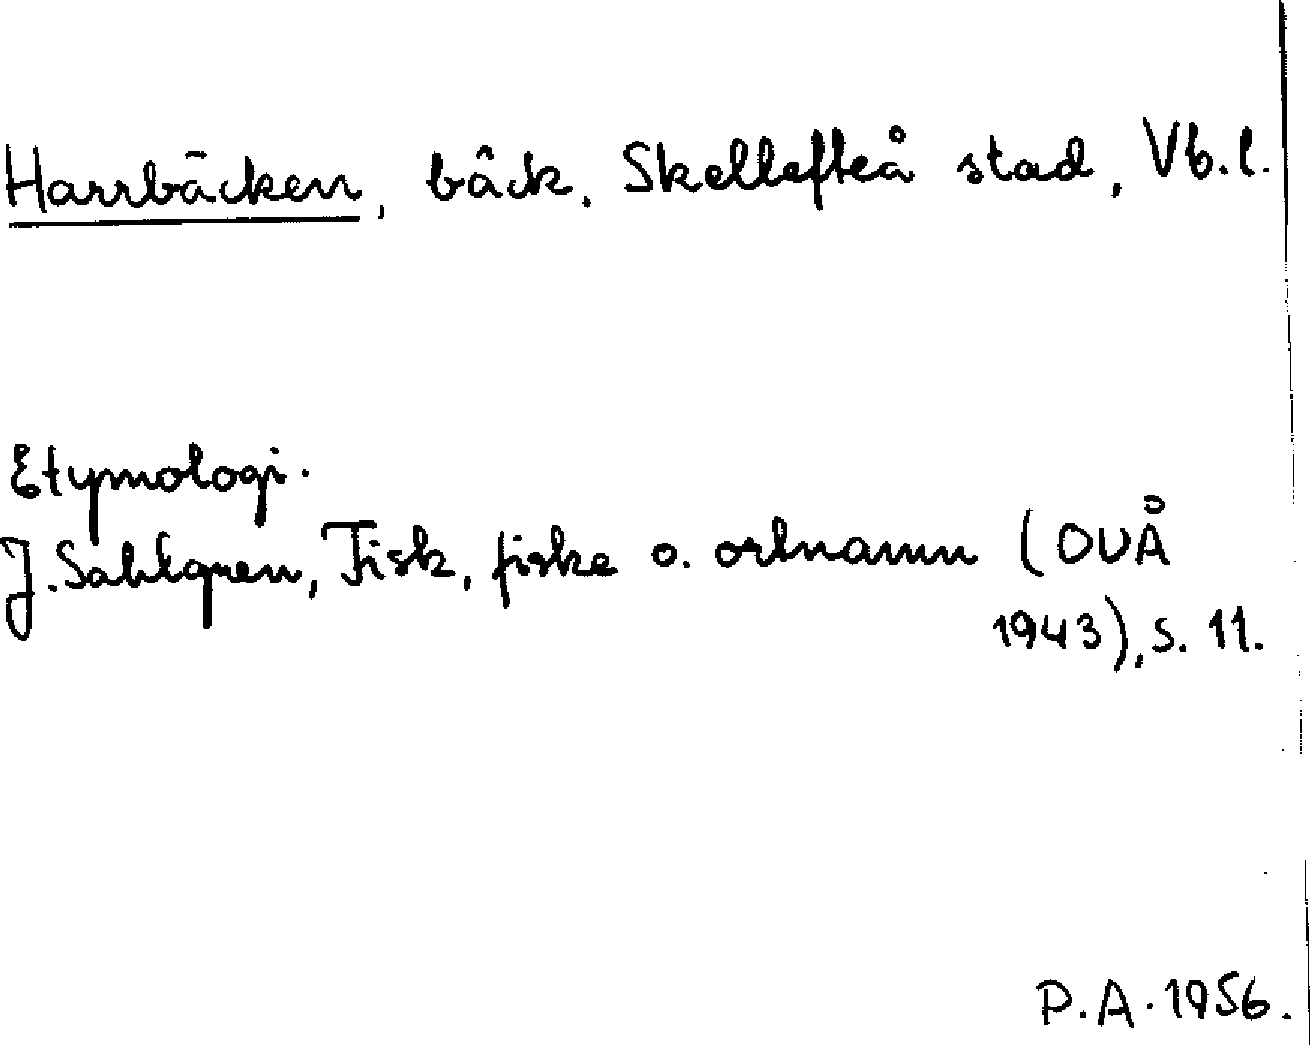 Harrbäcken, bäck, Skellefteå stad, Vb.l.
Etymologi.
J. Sahlgren, Fisk, fiske o. ortnamn (OUÅ
1943), s. 11.
P.A. 1956.